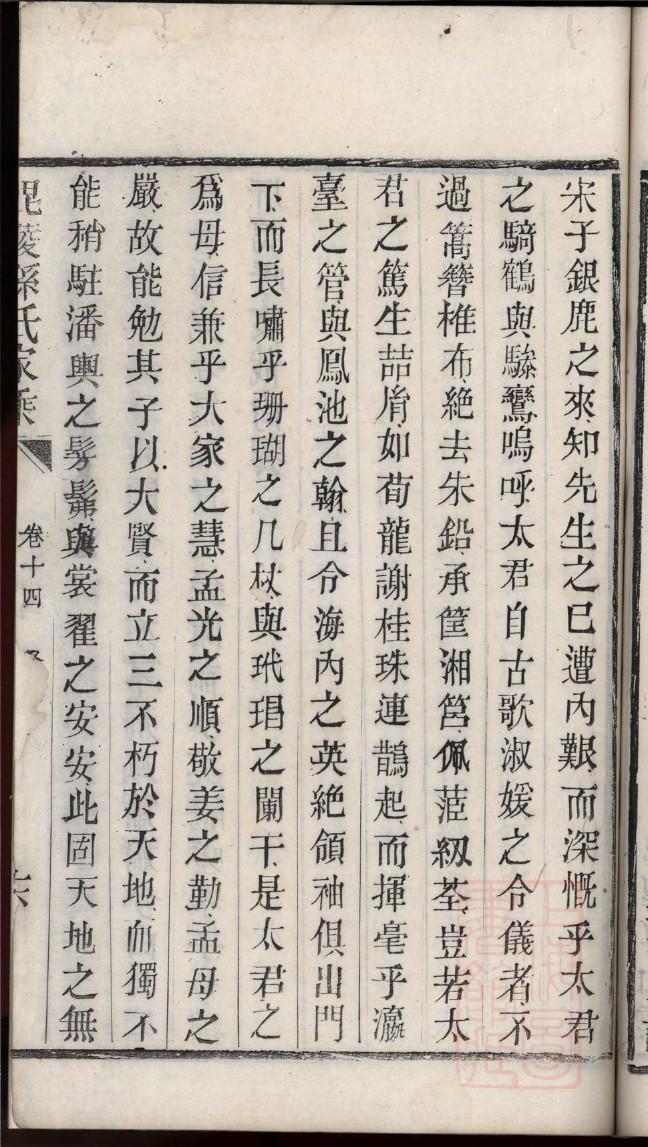 宋子銀鹿之來知先生之已遭內艱而深慨乎太君
之騎鶴與驂鸞嗚呼太君自古歌淑媛之令儀者不
過篙簪椎布絶去朱鉛承筐湘筥佩茝紉荃豈若太
君之篤生喆胤如荀龍謝桂珠連鵲起而揮毫乎瀛
臺之管與鳳池之翰且令海內之英絶領袖俱出門
下而長嘯乎珊瑚之几杖與玳瑁之闌干是太君之
爲母信兼乎大家之慧孟光之順敬姜之勤孟母之
嚴故能勉其子以大賢而立三不朽於天地而獨不
能稍駐潘輿之髣髴與裳翟之安安此固天地之無
毘陵孫氏家乘
卷十四